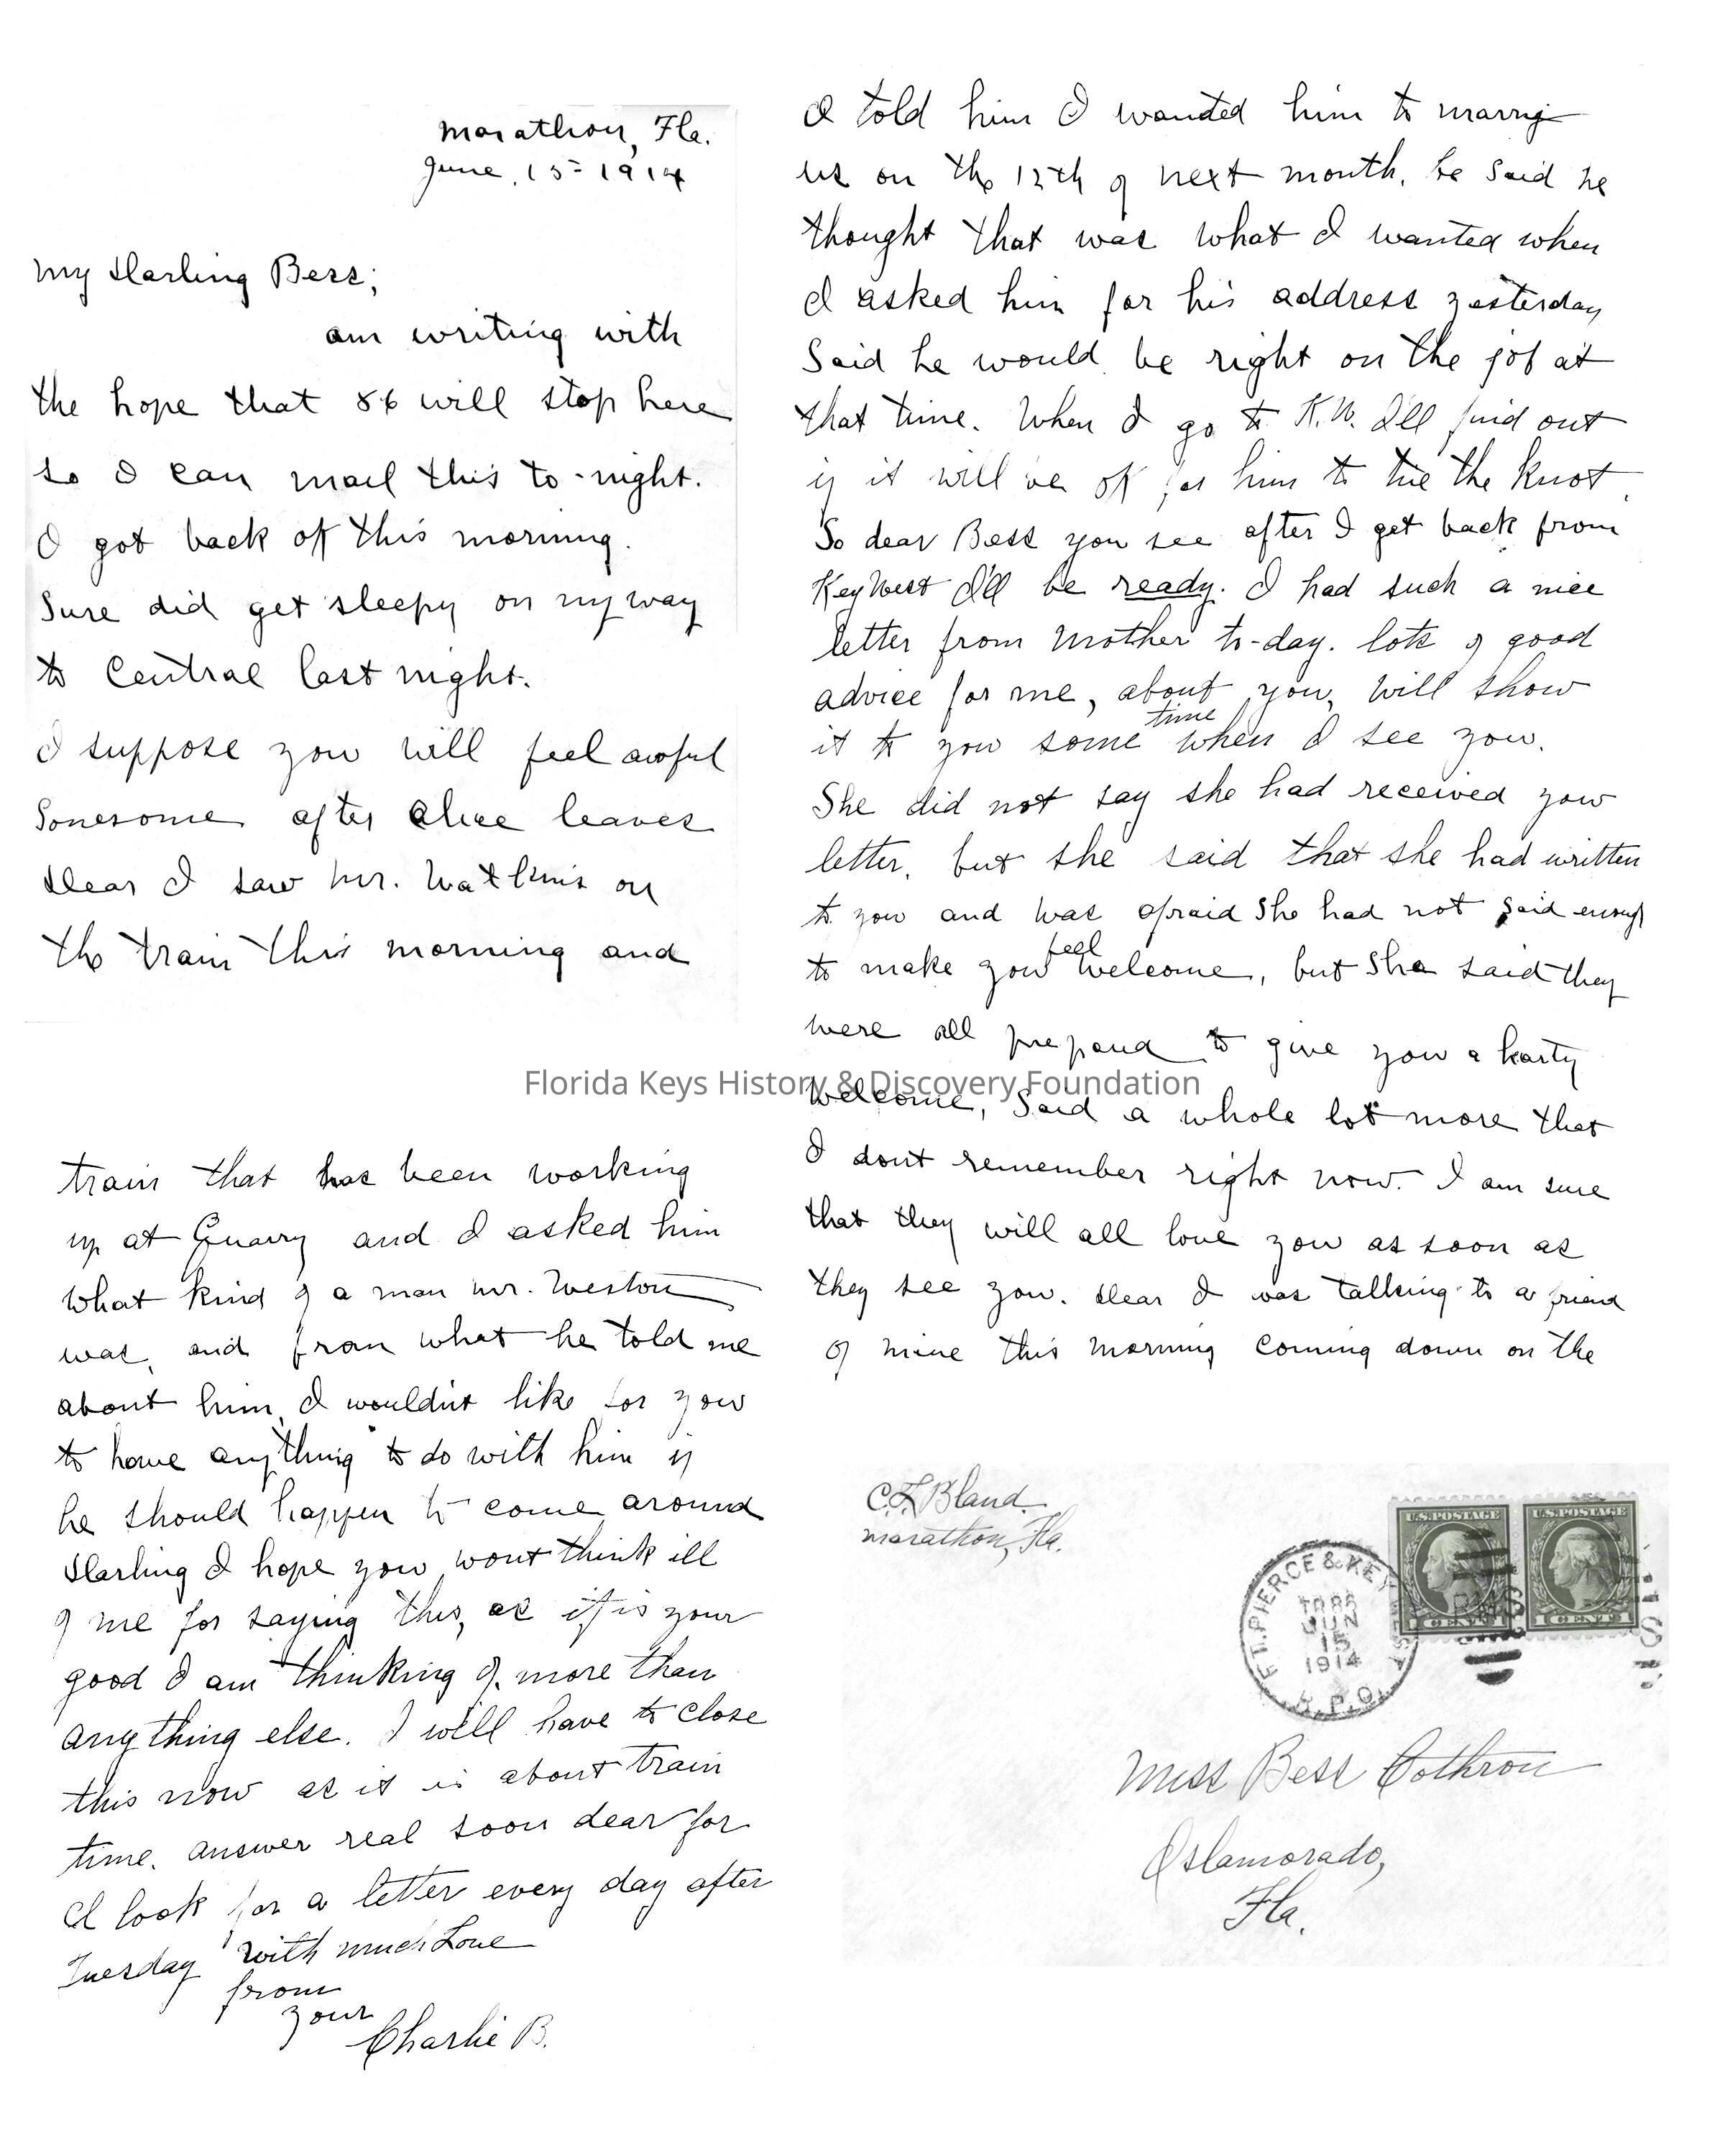 Marathon, Fla.
June, 15 - 1914
My Darling Bess;
am writing with
the hope that 86 will stop here
so I can mail this to-night.
I got back ok this morning.
Sure did get sleepy on my way
to Central last night.
I suppose you will feel awful
lonesome after Alice leaves
Dear I saw Mr. Watkins on
the train this morning and
I told him I wanted him to marry
us on the 12th of next month, he said he
thought that was what I wanted when
I asked him for his address yesterday
Said he would be right on the job at
that time. When I go to K.W. I'll find out
if it will be ok for him to tie the knot.
So dear Bess you see after I get back from
Key West I'll be ready. I had such a nice
letter from Mother to-day. lots of good
advice for me, about you, will show
it to you some time when I see you.
She did not say she had received your
letter, but she said that she had written
to you and was afraid she had not said enough
to make you feel welcome, but she said they
were all prepared to give you a harty
welcome, said a whole lot more that
I don't remember right now. I am sure
that they will all love you as soon as
they see you. Dear I was talking to a friend
of mine this morning coming down on the
train that has been working
up at Quarry and I asked him
what kind of a man Mr. Weston
was, and from what he told me
about him, I wouldn't like for you
to have anything to do with him if
he should happen to come around
Darling I hope you wont think ill
of me for saying this, as it is your
good I am thinking of, more than
anything else. I will have to close
this now as it is about train
time. Answer real soon dear for
I look for a letter every day after
Tuesday with much Love
from
your
Charlie B.
C.L. Bland
Marathon, Fla.
U.S. POSTAGE
U.S. POSTAGE
1 CENT 1
1 CENT 1
FT. PIERCE & KEY
JUN
15
1914
R.P.O.
Miss Bess Cothron
Islamorado,
Fla.
Florida Keys History & Discovery Foundation